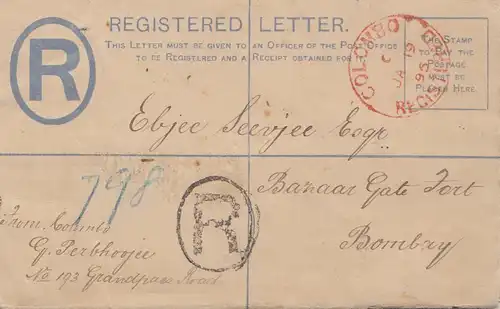 REGISTERED LETTER.
THIS LETTER MUST BE GIVEN TO AN OFFICER OF THE POST OFFICE
TO BE REGISTERED AND A RECEIPT OBTAINED FOR IT.
R
THE STAMP
TO PAY THE
POSTAGE
MUST BE
PLACED HERE.
COLOMBO
C
JA 19
95
Ebjee Seevjee Esqr
Bazaar Gate Fort
Bombay
798
R
From Colombo
G. Perbhoojee
No 193 Grandpass Road